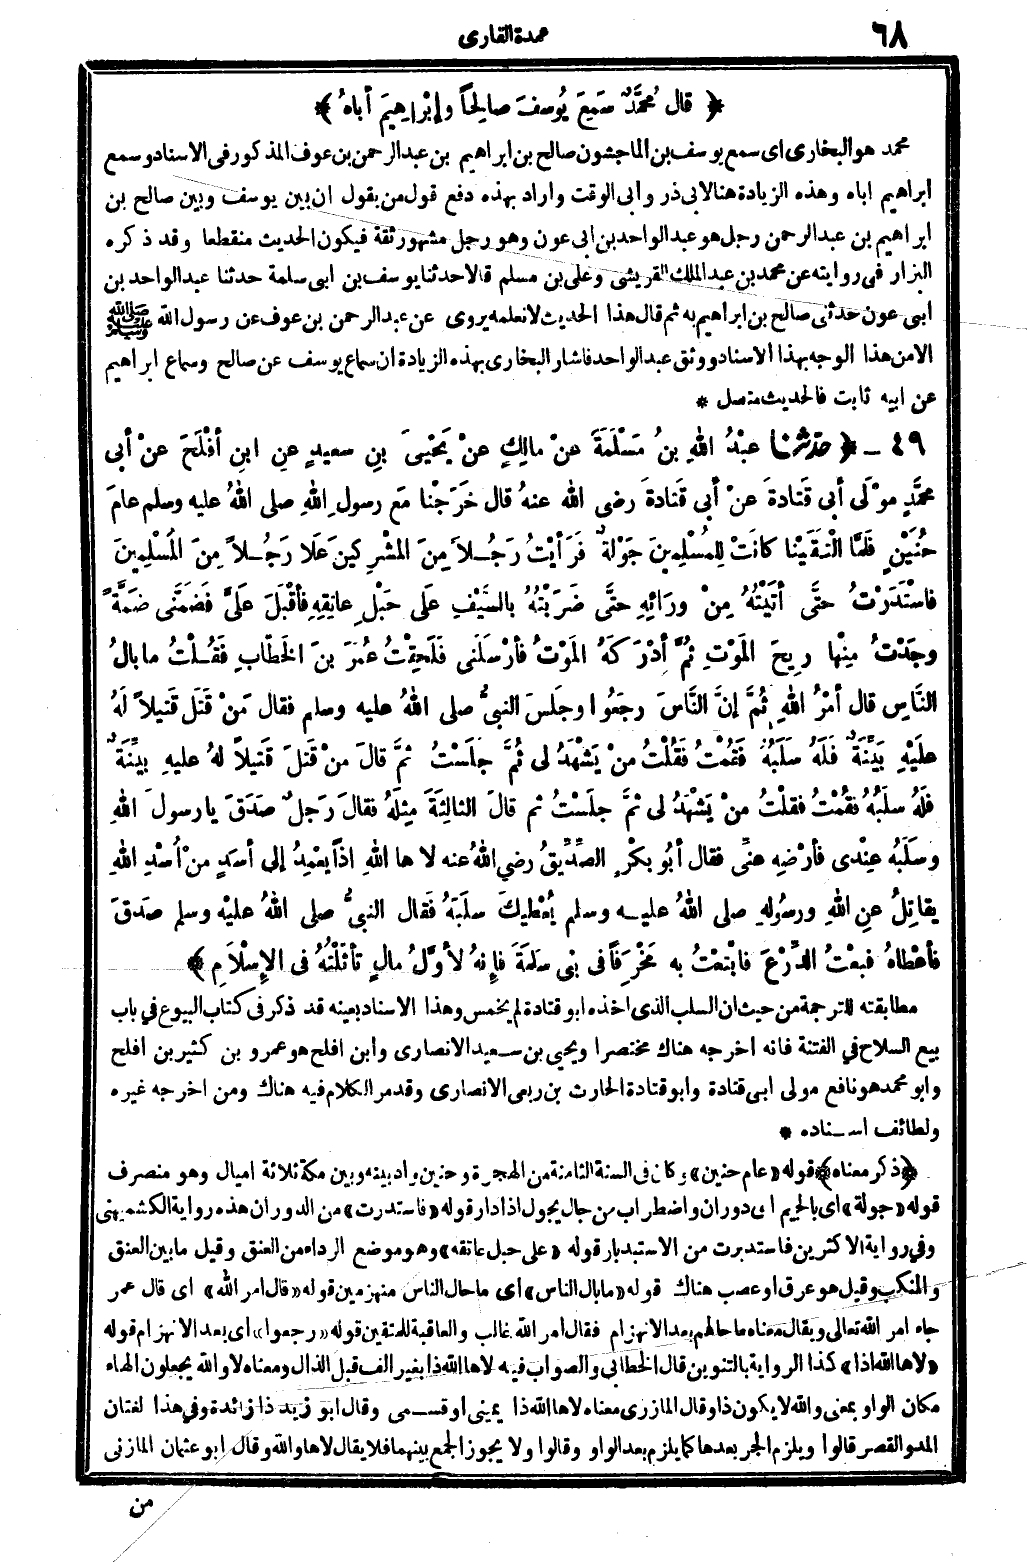 ٦٨
عمدة القارى
﴿ قال مُحمَّدٌ سَمِعَ يُوسُفَ صالِحًا وإبْراهِيمَ أباهُ ﴾
محمد هو البخارى اى سمع يوسف بن الماجشون صالح بن ابراهيم بن عبد الرحمن بن عوف المذكور فى الاسناد وسمع
ابراهيم اباه وهذه الزيادة هنا لابى ذر وابى الوقت واراد بهذه دفع قول من يقول ان بين يوسف وبين صالح بن
ابراهيم بن عبد الرحمن رجل هو عبد الواحد بن ابى عون وهو رجل مشهور ثقة فيكون الحديث منقطعا وقد ذكره
البزار فى روايته عن محمد بن عبد الملك القريشى وعلى بن مسلم قالا حدثنا يوسف بن ابى سلمة حدثنا عبد الواحد بن
ابى عون حدثنى صالح بن ابراهيم به ثم قال هذا الحديث لا نعلمه يروى عن عبد الرحمن بن عوف عن رسول الله ﷺ
الا من هذا الوجه بهذا الاسناد ووثق عبد الواحد فاشار البخارى بهذه الزيادة ان سماع يوسف عن صالح وسماع ابراهيم
عن ابيه ثابت فالحديث متصل *
٤٩ ـ ﴿ حَدَّثَنَا عبْدُ اللهِ بنُ مَسْلَمَةَ عنْ مالِكٍ عنْ يَحْيىَ بنِ سعيدٍ عنِ ابنِ أفْلَحَ عنْ أبى
محمَّدٍ موْلَى أبى قَتادةَ عنْ أبى قَتادةَ رضى الله عنهُ قال خَرَجْنا مَع رسولِ اللهِ صلى اللهُ عليه وسلم عامَ
حُنَيْنٍ فلمَّا الْتَقَيْنا كانَتْ لِلمُسْلِمِينَ جَوْلةٌ فَرَأيْتُ رَجُلاً مِنَ المُشْرِكِينَ عَلَا رَجُلاً مِنَ المُسْلِمِينَ
فاسْتَدَرْتُ حتَّى أتَيْتُهُ مِنْ ورَائِهِ حتَّى ضَرَبْتُهُ بالسَّيْفِ عَلَى حَبْلِ عاتِقِهِ فأقْبَلَ عَلَىَّ فَضَمَّنى ضَمَّةً
وجَدْتُ مِنْها رِيحَ المَوْتِ ثُمَّ أدْرَكَهُ المَوْتُ فأرْسَلَنى فَلَحِقْتُ عُمَرَ بنَ الخَطَّابِ فَقُلْتُ ما بالُ
النَّاسِ قال أمْرُ اللهِ ثُمَّ إنَّ النَّاسَ رجَعُوا وجَلَسَ النبىُّ صلى اللهُ عليه وسلم فقال مَنْ قَتَلَ قَتِيلاً لَهُ
علَيْهِ بَيِّنَةٌ فَلَهُ سَلَبُهُ فَقُمْتُ فَقُلْتُ منْ يَشْهَدُ لى ثُمَّ جلَسْتُ ثمَّ قالَ منْ قتَلَ قَتيلاً لهُ عليهِ بيِّنَةٌ
فَلَهُ سلَبُهُ فقُمْتُ فقلْتُ منْ يَشْهَدُ لى ثمَّ جلَسْتُ ثم قالَ الثالِثَةَ مِثْلَهُ فقالَ رَجلٌ صَدَقَ يا رسولَ اللهِ
وسَلَبُهُ عِنْدى فأرْضِهِ عنِّى فقال أبُو بكْرٍ الصِّدِّيقُ رضي اللهُ عنه لا ها اللهِ اذاً يعْمِدُ إلى أسَدٍ منْ أُسْدِ اللهِ
يقاتِلُ عنِ اللهِ ورسُولِهِ صلى اللهُ عليه وسلم يُعْطيكَ سلَبَهُ فَقال النبىُّ صلى اللهُ عليْه وسلم صدَقَ
فأعْطاهُ فبعْتُ الدِّرْعَ فابْتعْتُ به مَخْرَفًا فى بنى سلِمَةَ فإنهُ لأوَّلُ مالٍ تأثَّلْتُهُ فى الإسْلَامِ ﴾
مطابقته للترجمة من حيث ان السلب الذى اخذه ابو قتادة لم يخمس وهذا الاسناد بعينه قد ذكر فى كتاب البيوع في باب
بيع السلاح في الفتنة فانه اخرجه هناك مختصرا ويحيى بن سعيد الانصارى وابن افلح هو عمرو بن كثير بن افلح
وابو محمد هو نافع مولى ابى قتادة وابو قتادة الحارث بن ربعى الانصارى وقد مر الكلام فيه هناك ومن اخرجه غيره
ولطائف اسناده *
﴿ ذكر معناه ﴾ قوله «عام حنين» وكان فى السنة الثامنة من الهجرة وحنين واد بينه وبين مكة ثلاثة اميال وهو منصرف
قوله «جولة» اى بالجيم اى دوران واضطراب من جال يجول اذا دار قوله «فاستدرت» من الدوران هذه رواية الكشميهنى
وفى رواية الاكثرين فاستدبرت من الاستدبار قوله «على حبل عاتقه» وهو موضع الرداء من العنق وقيل ما بين العنق
والمنكب وقيل هو عرق او عصب هناك قوله «ما بال الناس» اى ما حال الناس منهزمين قوله «قال امر الله» اى قال عمر
جاء امر الله تعالى ويقال معناه ما حالهم بعد الانهزام فقال امر الله غالب والعاقبة للمتقين قوله «رجعوا» اى بعد الانهزام قوله
«لا ها الله اذا» كذا الرواية بالتنوين قال الخطابى والصواب فيه لا ها الله ذا بغير الف قبل الذال ومعناه لا والله يجعلون الهاء
مكان الواو بمعنى والله لا يكون ذا وقال المازرى معناه لا ها الله ذا يمينى او قسمى وقال ابو زيد ذا زائدة وفي هذا لغتان
المد والقصر قالوا ويلزم الجر بعدها كما يلزم بعد الواو وقالوا ولا يجوز الجمع بينهما فلا يقال لا ها والله وقال ابو عثمان المازنى
من